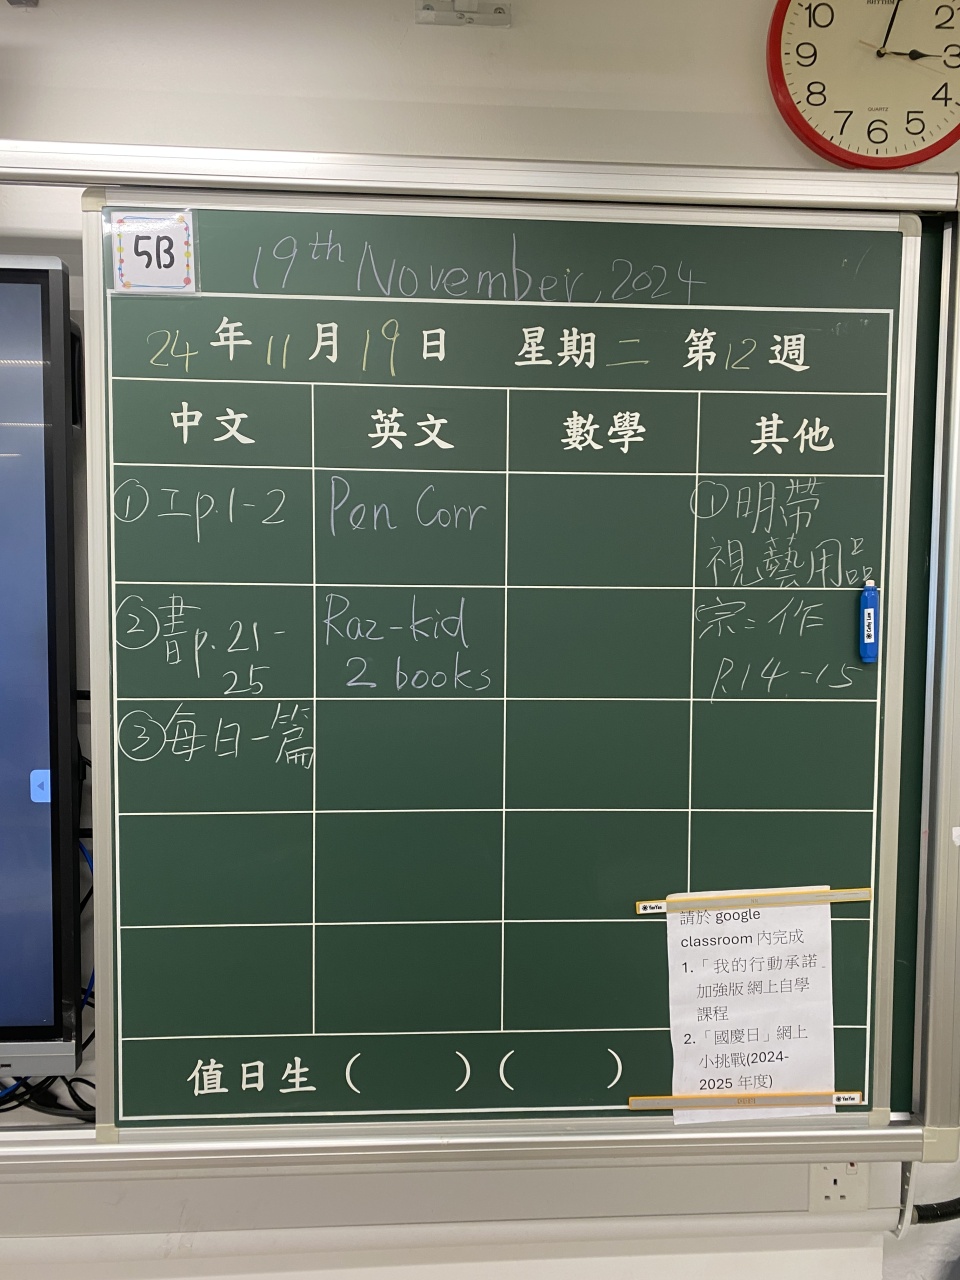 RHYTHM
10
2
9
3
8
4
7
6
5
QUARTZ
5B
19th November, 2024
24年11月19日 星期二 第12週
中文 英文 數學 其他
①工p.1-2
Pen Corr
①明帶
視藝用品
②書p.21-
25
Raz-kid
2 books
宗:作
P.14-15
③每日一篇
YooYee
請於 google
classroom 內完成
1.「我的行動承諾
加強版 網上自學
課程
2.「國慶日」網上
小挑戰(2024-
2025 年度)
值日生( )( )
YooYee